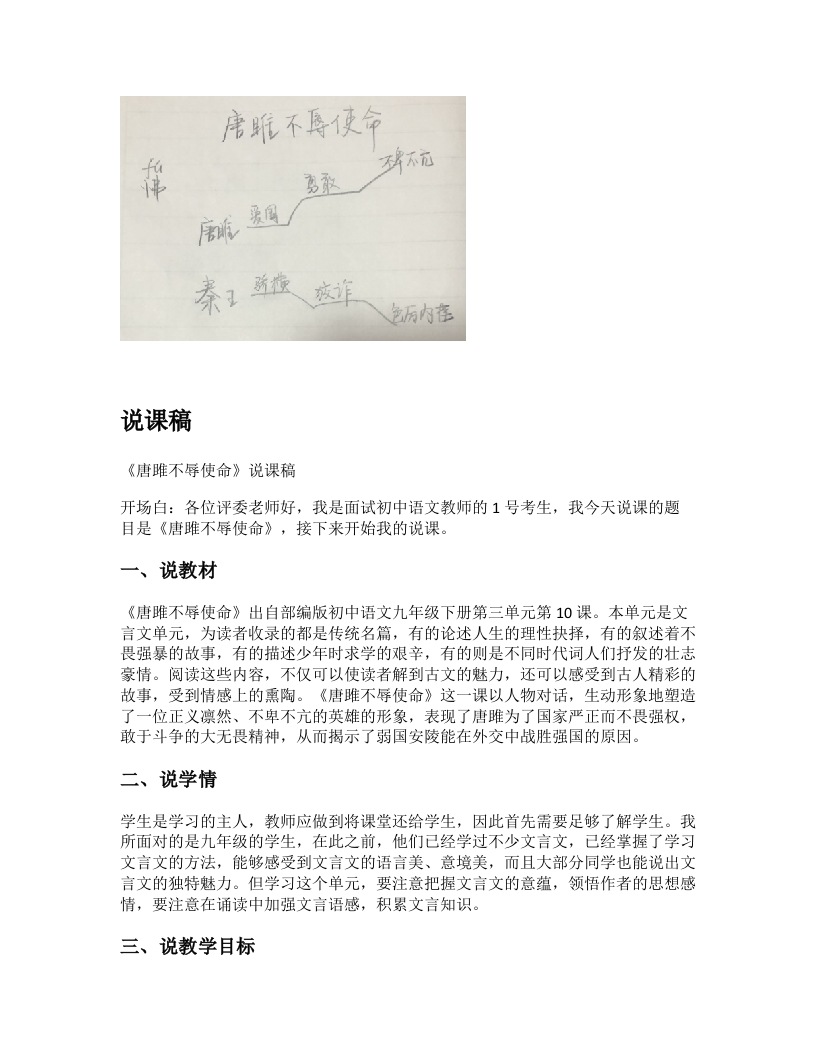 唐雎不辱使命
fú
怫
不卑不亢
勇敢
爱国
唐雎
骄横
秦王
狡诈
色厉内荏
说课稿
《唐雎不辱使命》说课稿
开场白：各位评委老师好，我是面试初中语文教师的 1 号考生，我今天说课的题
目是《唐雎不辱使命》，接下来开始我的说课。
一、说教材
《唐雎不辱使命》出自部编版初中语文九年级下册第三单元第 10 课。本单元是文
言文单元，为读者收录的都是传统名篇，有的论述人生的理性抉择，有的叙述着不
畏强暴的故事，有的描述少年时求学的艰辛，有的则是不同时代词人们抒发的壮志
豪情。阅读这些内容，不仅可以使读者解到古文的魅力，还可以感受到古人精彩的
故事，受到情感上的熏陶。《唐雎不辱使命》这一课以人物对话，生动形象地塑造
了一位正义凛然、不卑不亢的英雄的形象，表现了唐雎为了国家严正而不畏强权，
敢于斗争的大无畏精神，从而揭示了弱国安陵能在外交中战胜强国的原因。
二、说学情
学生是学习的主人，教师应做到将课堂还给学生，因此首先需要足够了解学生。我
所面对的是九年级的学生，在此之前，他们已经学过不少文言文，已经掌握了学习
文言文的方法，能够感受到文言文的语言美、意境美，而且大部分同学也能说出文
言文的独特魅力。但学习这个单元，要注意把握文言文的意蕴，领悟作者的思想感
情，要注意在诵读中加强文言语感，积累文言知识。
三、说教学目标